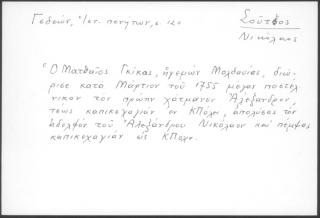 Γεδεών, Ἱστ. πενήτων, σ. 120
Σοῦτσος
Νικόλαος
Ὁ Ματθαῖος Γκίκας, ἡγεμὼν Μολδαυίας, διώ-
ρισε κατὰ Μάρτιον τοῦ 1755 μέγαν ποστέλ-
νικον τὸν πρώην χάτμανον Ἀλέξανδρον,
τέως καπικεχαγιᾶν ἐν ΚΠόλει, ἀπολύσας τὸν
ἀδελφὸν τοῦ Ἀλεξάνδρου Νικόλαον καὶ πέμψας
καπικεχαγιᾶν εἰς ΚΠολιν.